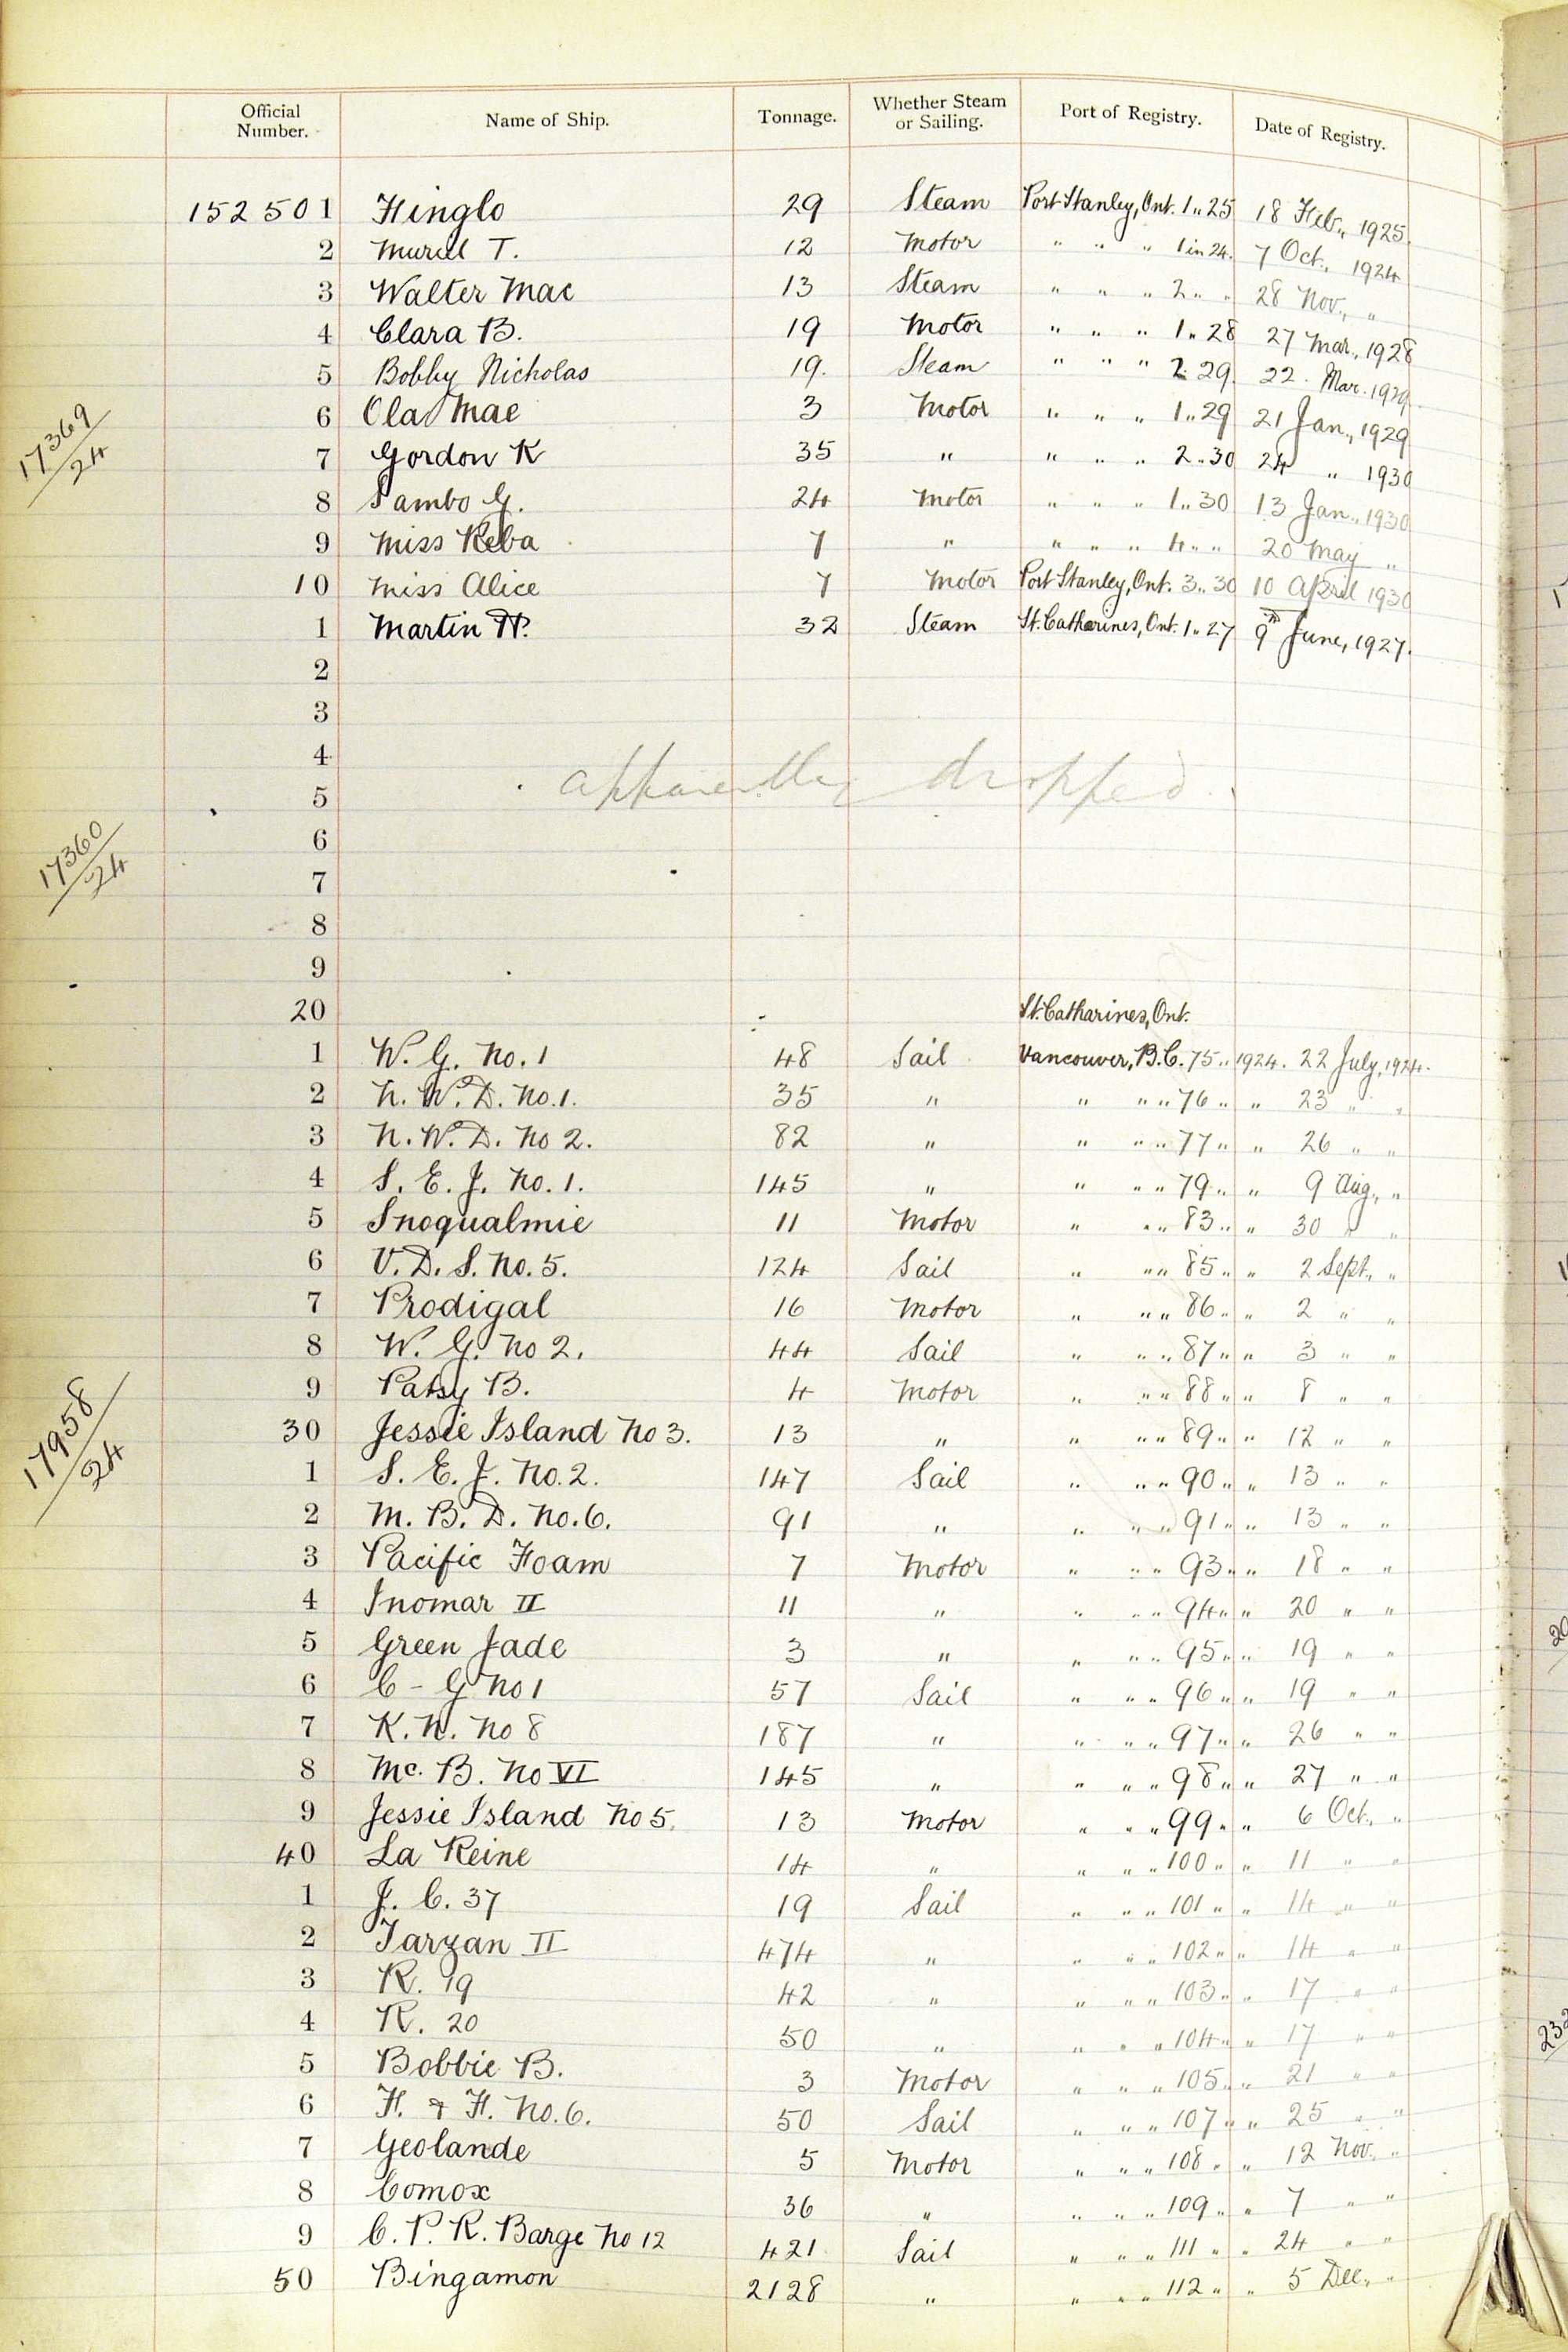 Official Number. Name of Ship. Tonnage. Whether Steam or Sailing. Port of Registry. Date of Registry.
152501 Finglo 29 Steam Port Stanley, Ont. 1 " 25 18 Feb., 1925.
2 Muriel T. 12 Motor " " " 1 in 24. 7 Oct., 1924
3 Walter Mac 13 Steam " " " 2 " " 28 Nov., "
4 Clara B. 19 Motor " " " 1 " 28 27 Mar., 1928
5 Bobby Nicholas 19. Steam " " " 2 29. 22. Mar. 1929.
6 Ola Mae 3 Motor " " " 1 " 29 21 Jan., 1929
17369/24
7 Gordon K 35 " " " " 2 " 30 24 " 1930
8 Sambo G. 24 Motor " " " 1 " 30 13 Jan., 1930
9 Miss Reba 7 " " " " 4 " " 20 May "
10 Miss Alice 7 Motor Port Stanley, Ont. 3 " 30 10 April 1930
1 Martin H. 32 Steam St. Catharines, Ont. 1 " 27 9th June, 1927.
2
3
4
apparently dropped.
5
6
17360/24
7
8
9
20 St. Catharines, Ont.
1 W. G. No. 1 48 Sail Vancouver, B.C. 75 " 1924. 22 July, 1924.
2 N. W. D. No. 1. 35 " " " " 76 " " 23 " "
3 N. W. D. No 2. 82 " " " " 77 " " 26 " "
4 S. E. J. No. 1. 145 " " " " 79 " " 9 Aug., "
5 Snoqualmie 11 Motor " " " 83 " " 30 " "
6 V. D. S. No. 5. 124 Sail " " " 85 " " 2 Sept., "
7 Prodigal 16 Motor " " " 86 " " 2 " "
8 W. G. No 2. 44 Sail " " " 87 " " 3 " "
9 Patsy B. 4 Motor " " " 88 " " 8 " "
30 Jessie Island No 3. 13 " " " " 89 " " 12 " "
17958/24
1 S. E. J. No. 2. 147 Sail " " " 90 " " 13 " "
2 M. B. D. No. 6. 91 " " " " 91 " " 13 " "
3 Pacific Foam 7 Motor " " " 93 " " 18 " "
4 Inomar II 11 " " " " 94 " " 20 " "
5 Green Jade 3 " " " " 95 " " 19 " "
6 C - G No 1 57 Sail " " " 96 " " 19 " "
7 K. N. No 8 187 " " " " 97 " " 26 " "
8 Mc. B. No VI 145 " " " " 98 " " 27 " "
9 Jessie Island No 5. 13 Motor " " " 99 " " 6 Oct., "
40 La Reine 14 " " " " 100 " " 11 " "
1 J. C. 37 19 Sail " " " 101 " " 14 " "
2 Tarzan II 474 " " " " 102 " " 14 " "
3 R. 19 42 " " " " 103 " " 17 " "
4 R. 20 50 " " " " 104 " " 17 " "
5 Bobbie B. 3 Motor " " " 105 " " 21 " "
6 F. & F. No. 6. 50 Sail " " " 107 " " 25 " "
7 Geolande 5 Motor " " " 108 " " 12 Nov., "
8 Comox 36 " " " " 109 " " 7 " "
9 C. P. R. Barge No 12 421 Sail " " " 111 " " 24 " "
50 Bingamon 2128 " " " " 112 " " 5 Dec., "